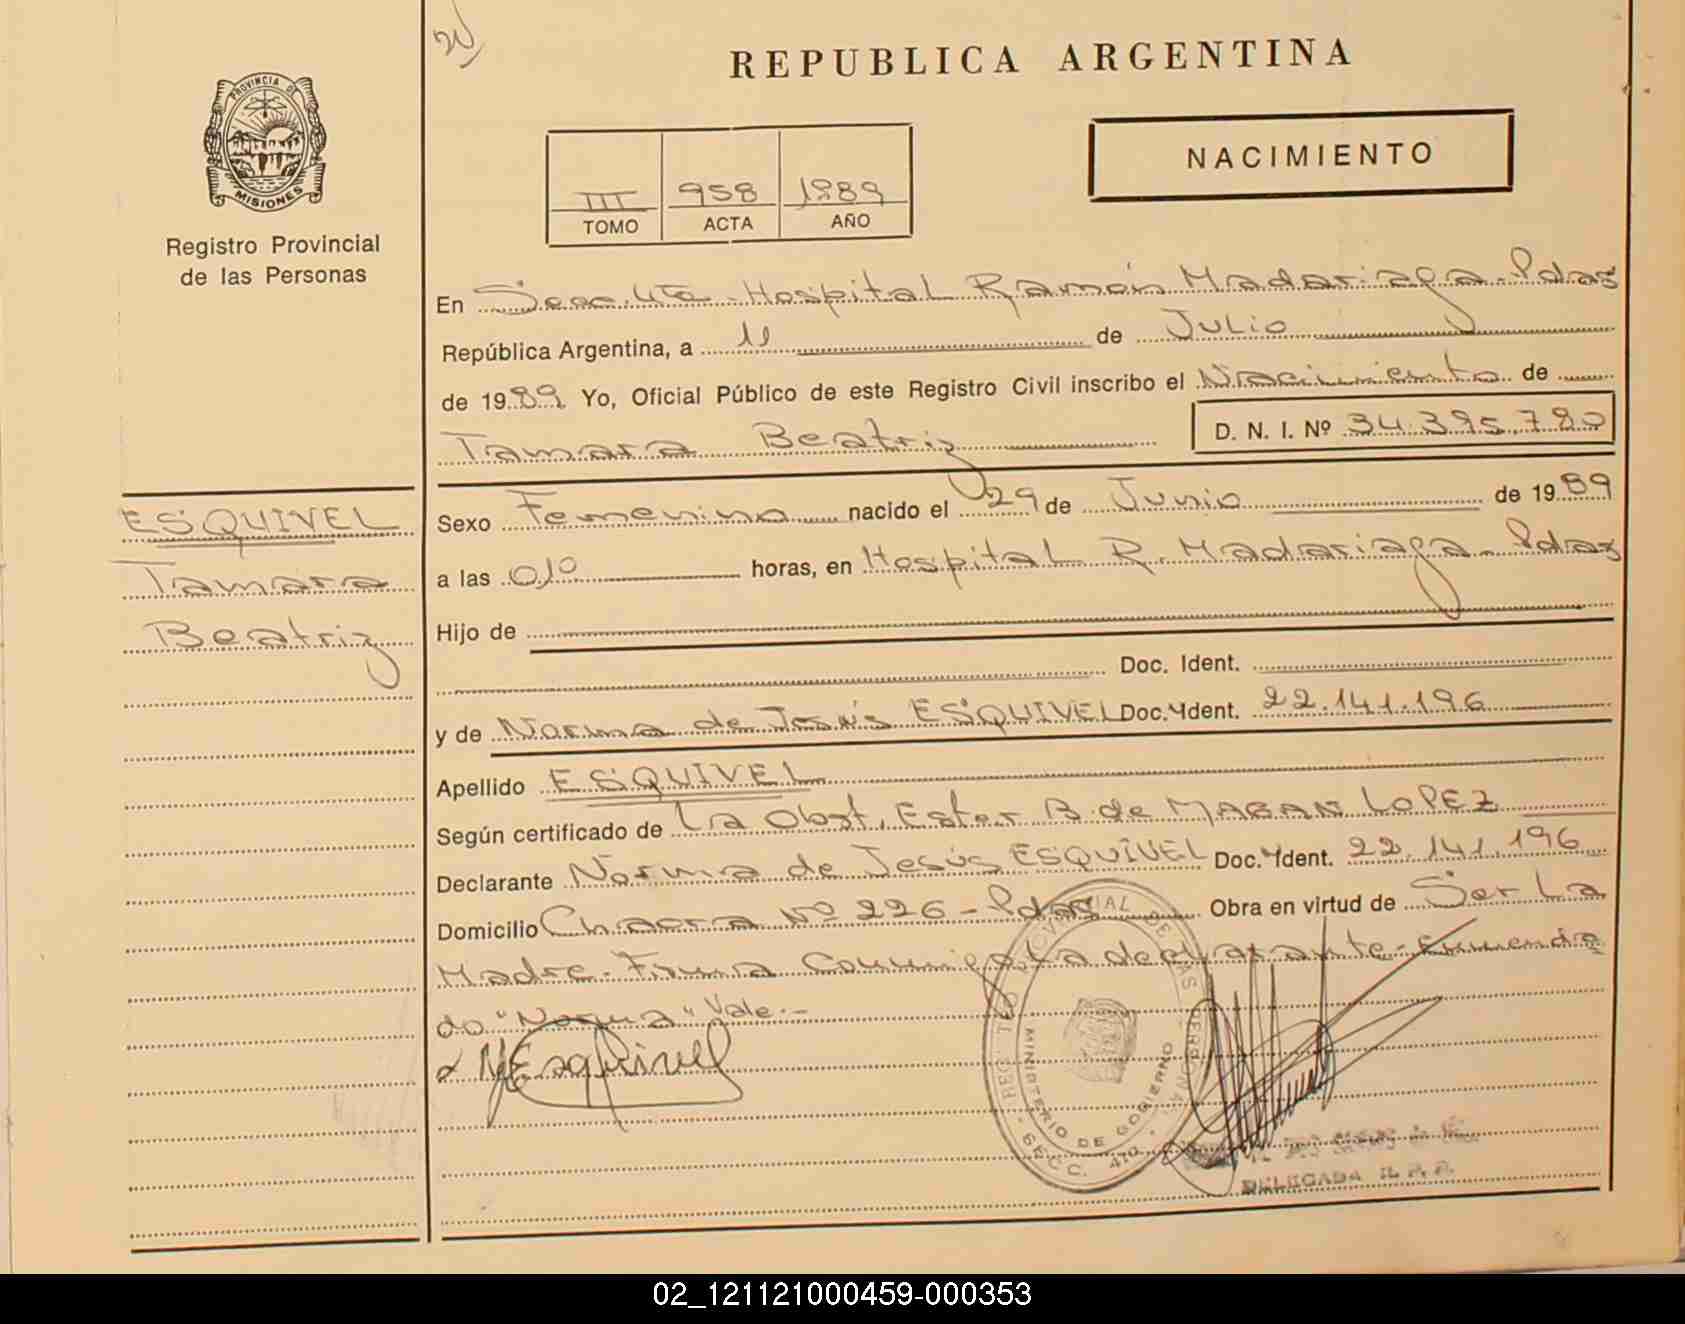 REPUBLICA ARGENTINA
PROVINCIA DE
MISIONES
Registro Provincial
de las Personas
NACIMIENTO
III 958 1989
TOMO ACTA AÑO
En Secc. 4ta - Hospital Ramón Madariaga - Pdas
República Argentina, a 11 de Julio
de 1989 Yo, Oficial Público de este Registro Civil inscribo el Nacimiento de
Tamara Beatriz D. N. I. Nº 34.395.780
ESQUIVEL
Tamara
Beatriz
Sexo Femenino nacido el 29 de Junio de 1989
a las 01º horas, en Hospital R. Madariaga - Pdas
Hijo de
Doc. Ident.
y de Norma de Jesús ESQUIVEL Doc. Ident. 22.141.196
Apellido ESQUIVEL
Según certificado de La Obst. Ester B. de MABAN LOPEZ
Declarante Norma de Jesús ESQUIVEL Doc. Ident. 22.141.196
Domicilio Chacra Nº 226 - Pdas Obra en virtud de Ser La
Madre - Firma Conmigo La declarante - Enmenda
do "Norma" Vale.-
N Esquivel
MINISTERIO DE GOBIERNO
SECC. 4TA
DELEGADA R. P. P.
02_121121000459-000353